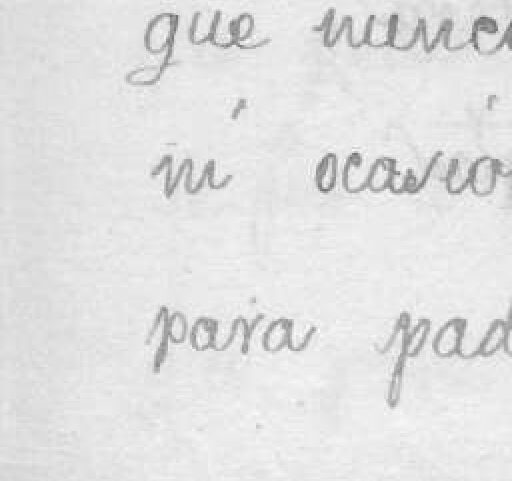 que nunc
ni ocasio
para pad